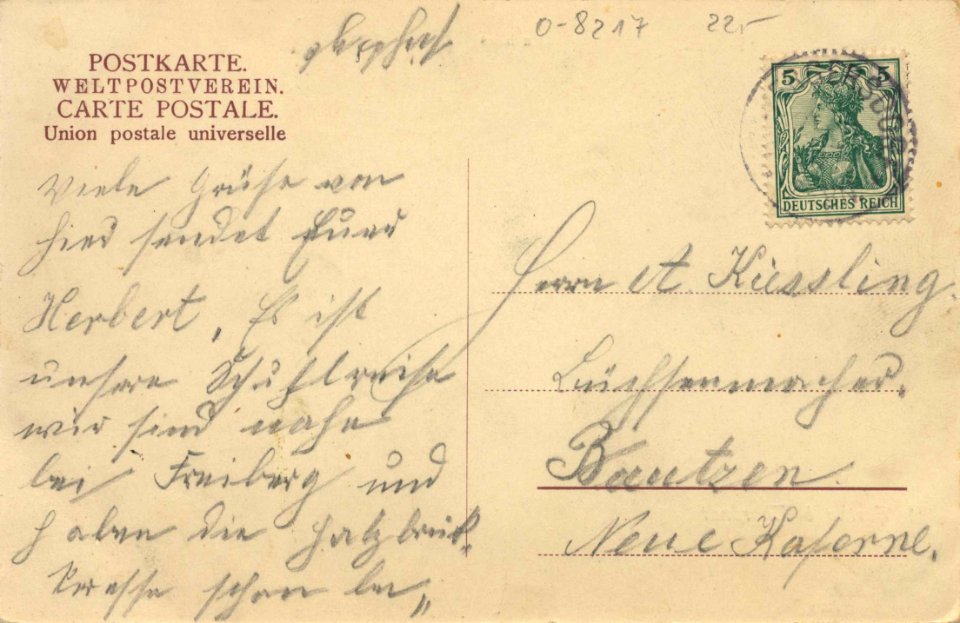 O-8217 22,-
POSTKARTE.
WELTPOSTVEREIN.
CARTE POSTALE.
Union postale universelle
5 5
DEUTSCHES REICH
Viele Grüße von
hier sendet Euer
Herbert, Es ist
unsere Schuhlreise
wir sind nahe
bei Freiberg und
haben die
schon be„
Herrn A. Kiessling.
Büchsenmacher.
Bautzen.
Neue Kaserne.